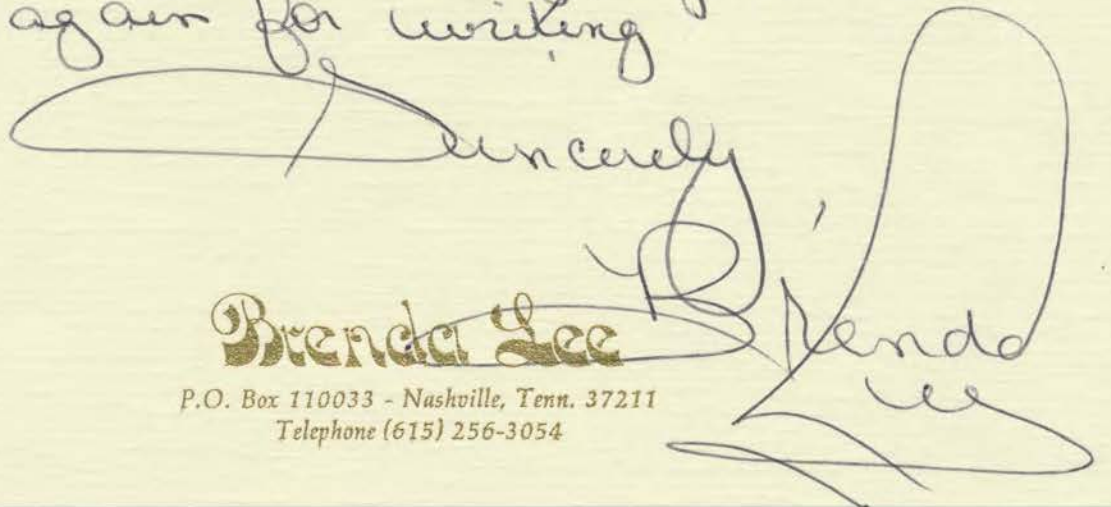 again for writing
Sincerely
Brenda
Lee
Brenda Lee
P.O. Box 110033 - Nashville, Tenn. 37211
Telephone (615) 256-3054